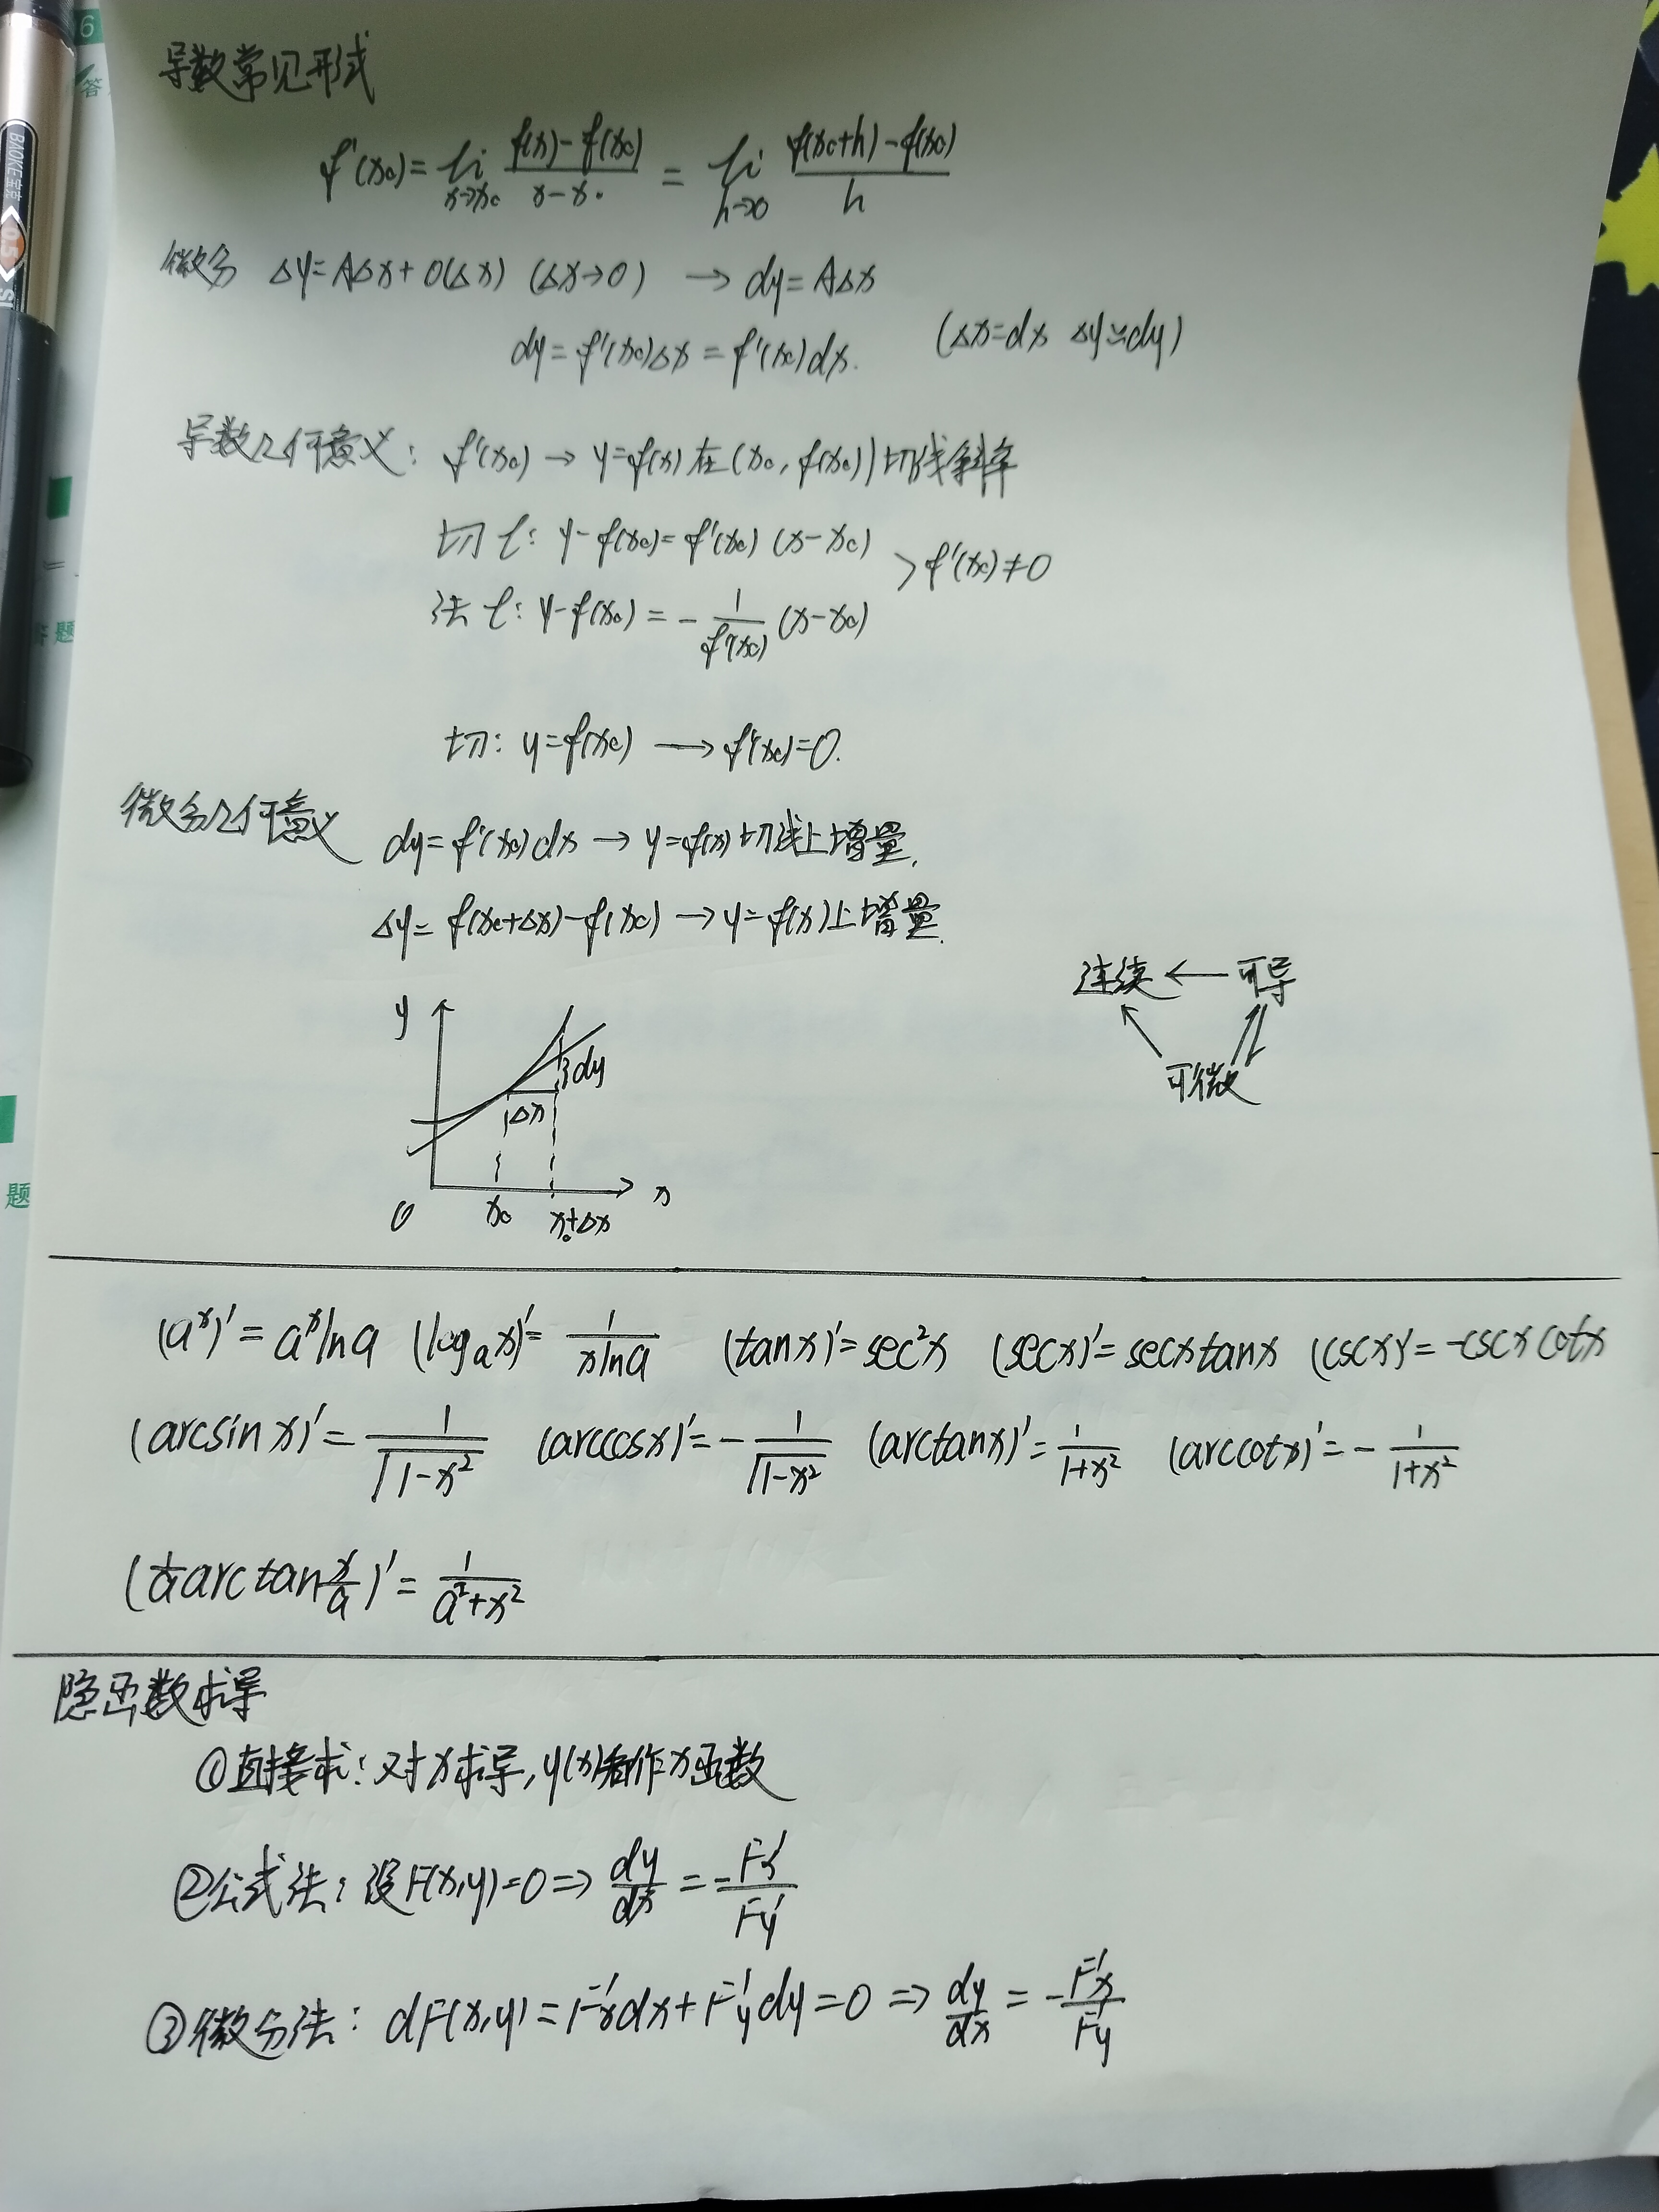 6
答
BAOKE 宝克
0.5
答题
题
导数常见形式
f'(x₀)=lim x→x₀ (f(x)-f(x₀))/(x-x₀) = lim h→0 (f(x₀+h)-f(x₀))/h
微分 Δy=AΔx+o(Δx) (Δx→0) → dy=AΔx
dy=f'(x₀)Δx=f'(x₀)dx. (Δx=dx Δy≈dy)
导数几何意义: f'(x₀)→ y=f(x)在(x₀,f(x₀))切线斜率
切 l: y-f(x₀)=f'(x₀)(x-x₀)
> f'(x₀)≠0
法 l: y-f(x₀)=-1/f'(x₀) (x-x₀)
切: y=f(x₀) → f'(x₀)=0.
微分几何意义 dy=f'(x₀)dx → y=f(x)切线上增量.
Δy=f(x₀+Δx)-f(x₀) → y=f(x)上增量.
连续 ← 可导
可微
y
dy
Δx
0 x₀ x₀+Δx x
(aˣ)'=aˣlna (logₐx)'=1/(xlna) (tanx)'=sec²x (secx)'=secxtanx (cscx)'=-cscxcotx
(arcsinx)'=1/√(1-x²) (arccosx)'=-1/√(1-x²) (arctanx)'=1/(1+x²) (arccotx)'=-1/(1+x²)
(1/a arctan x/a)'=1/(a²+x²)
隐函数求导
①直接求: 对x求导,y(x)看作x函数
②公式法: 设F(x,y)=0⇒dy/dx=-F'x/F'y
③微分法: dF(x,y)=F'xdx+F'ydy=0⇒dy/dx=-F'x/F'y